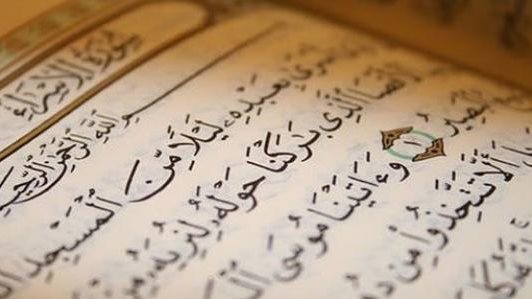 سُورَةُ الْإِسْرَاءِ
بِسْمِ اللَّهِ الرَّحْمَٰنِ الرَّحِيمِ
أَسْرَىٰ بِعَبْدِهِ لَيْلًا مِّنَ الْمَسْجِدِ
الْأَقْصَا الَّذِي بَٰرَكْنَا حَوْلَهُ لِنُرِيَهُ
الْبَصِيرُ ١ وَءَاتَيْنَا مُوسَى
أَلَّا تَتَّخِذُوا مِن